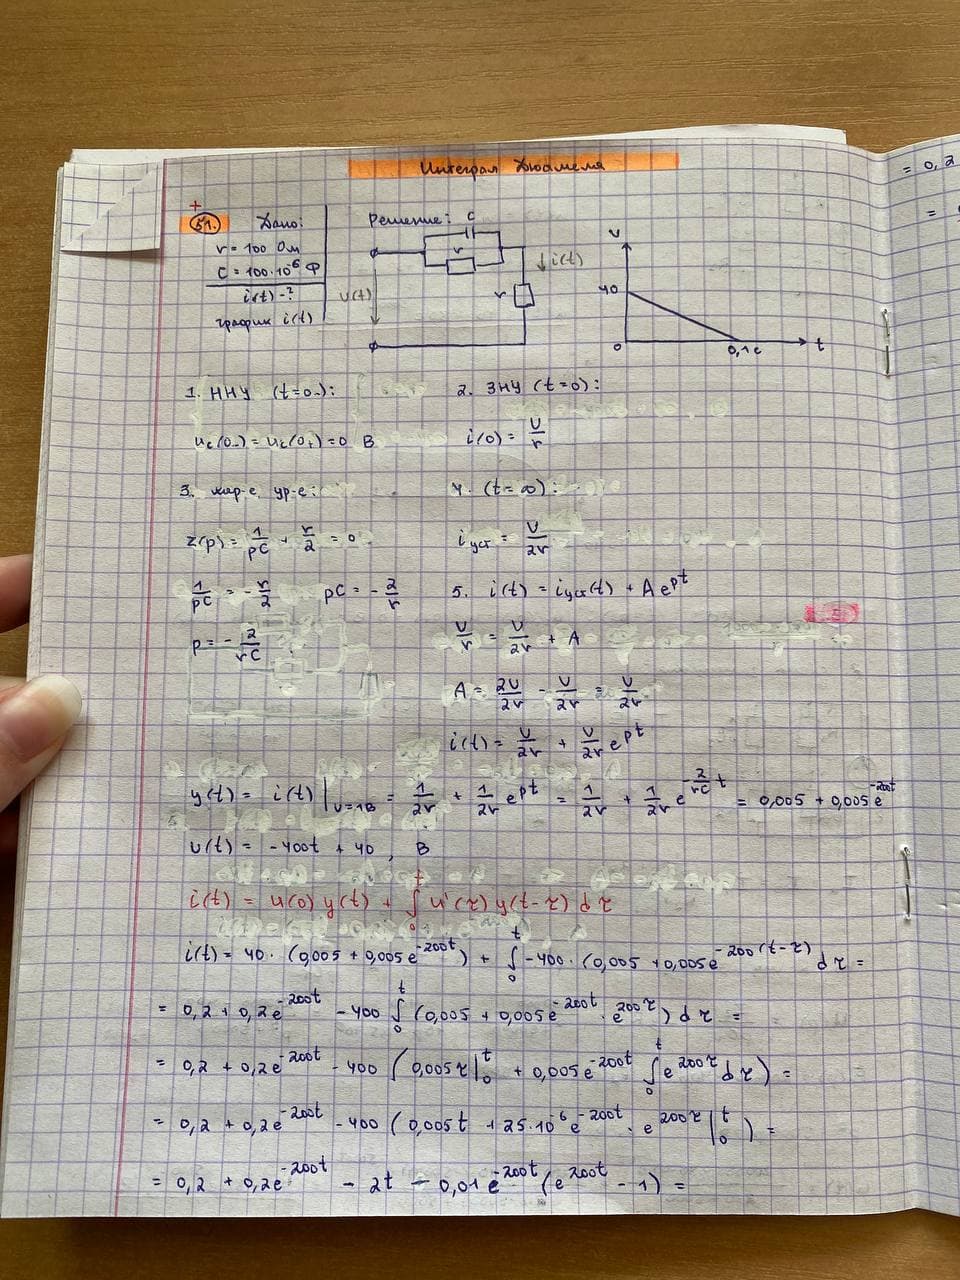 Интеграл Дюамеля
= 0,2
=
+
51. Дано:
r = 100 Ом
C = 100·10⁻⁶ Ф
i(t) - ?
график i(t)
Решение:
C
r
U(t)
r
↓ i(t)
U
40
0
0,1 c
t
1. ННУ (t=0₋):
u_C(0₋) = u_C(0₊) = 0 В
2. ЗНУ (t=0):
i(0) = U/r
3. хар-е ур-е:
Z(p) = 1/pC + r/2 = 0
1/pC = - r/2 pC = - 2/r
p = - 2/rC
4. (t=∞):
i уст = U/2r
5. i(t) = i уст(t) + A e^pt
U/r = U/2r + A
A = 2U/2r - U/2r = U/2r
i(t) = U/2r + U/2r e^pt
y(t) = i(t) |_U=1В = 1/2r + 1/2r e^pt = 1/2r + 1/2r e^(-2/rC t) = 0,005 + 0,005e^-200t
U(t) = -400t + 40, В
i(t) = u(0) y(t) + ∫₀ᵗ u'(τ) y(t-τ) dτ
i(t) = 40 · (0,005 + 0,005e^-200t) + ∫₀ᵗ -400 · (0,005 + 0,005e^-200(t-τ)) dτ =
= 0,2 + 0,2e^-200t - 400 ∫₀ᵗ (0,005 + 0,005e^-200t · e^200τ) dτ =
= 0,2 + 0,2e^-200t - 400 (0,005τ|₀ᵗ + 0,005e^-200t ∫₀ᵗ e^200τ dτ) =
= 0,2 + 0,2e^-200t - 400 (0,005t + 25·10⁻⁶e^-200t · e^200τ|₀ᵗ) =
= 0,2 + 0,2e^-200t - 2t - 0,01e^-200t (e^200t - 1) =